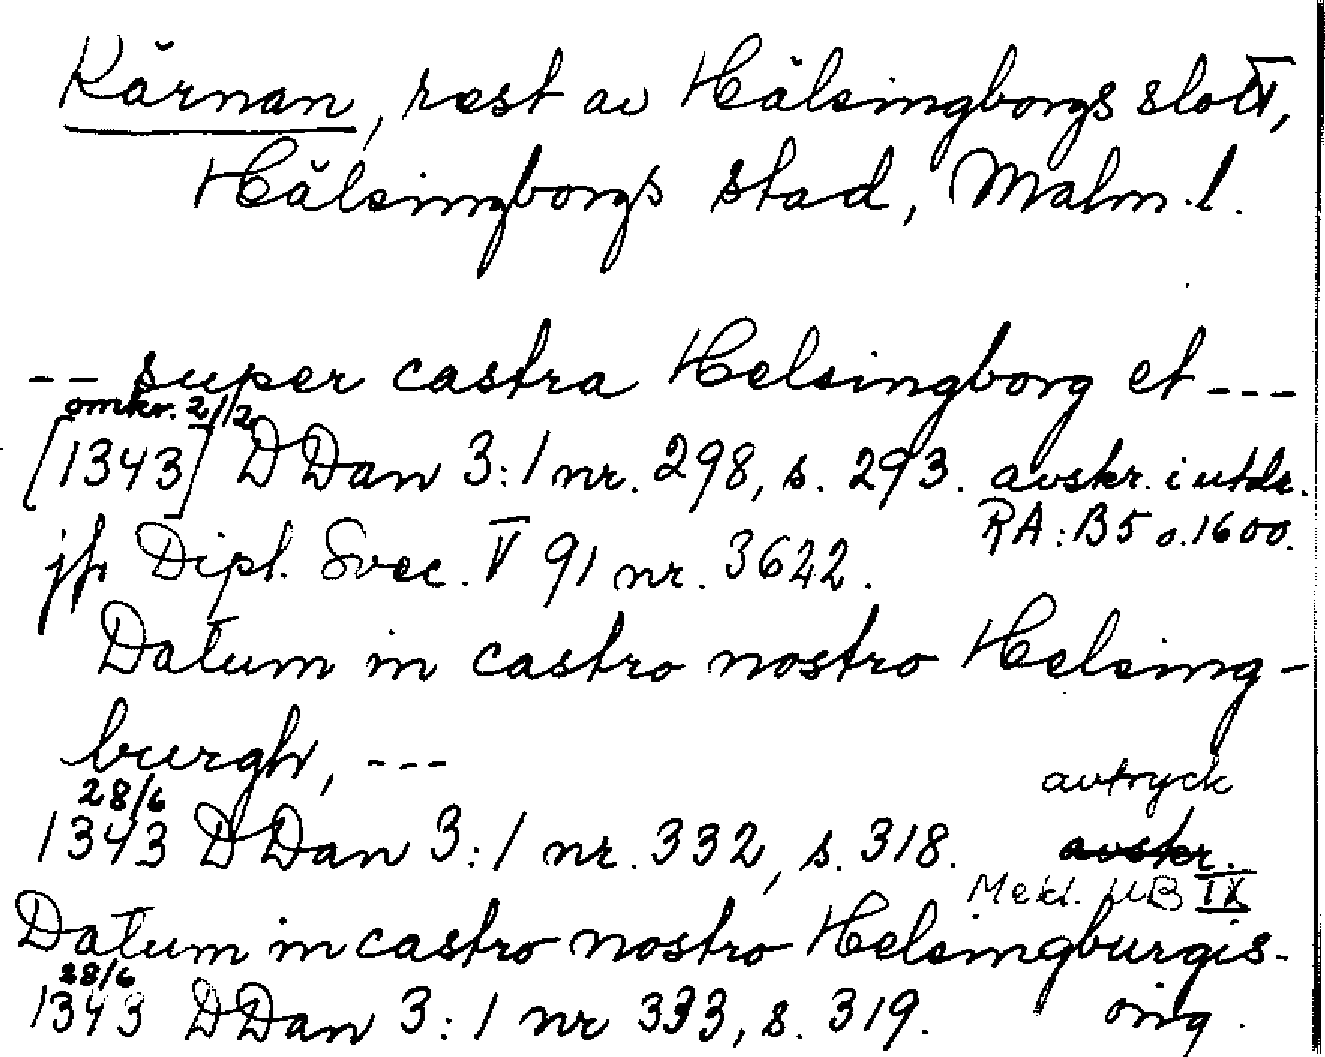 Kärnan, rest av Hälsingborgs slott,
Hälsingborgs stad, Malm.l.
-- super castra Helsingborg et ---
omkr. 2/12
[1343] DDan 3:1 nr. 298, s. 293. avskr. i utdr.
RA: B5 o. 1600.
jfr Dipl. Svec. V 91 nr. 3622.
Datum in castro nostro Helsing-
burgh, ---
28/6
avtryck
1343 DDan 3:1 nr. 332, s. 318. avskr.
Mekl. UB IX
Datum in castro nostro Helsingburgis-
28/6
1343 DDan 3:1 nr 333, s. 319. orig.